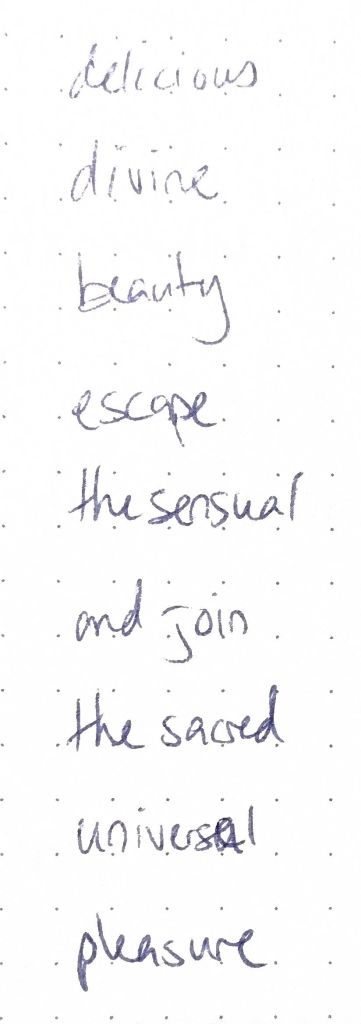 delicious
divine
beauty
escape
the sensual
and join
the sacred
universal
pleasure